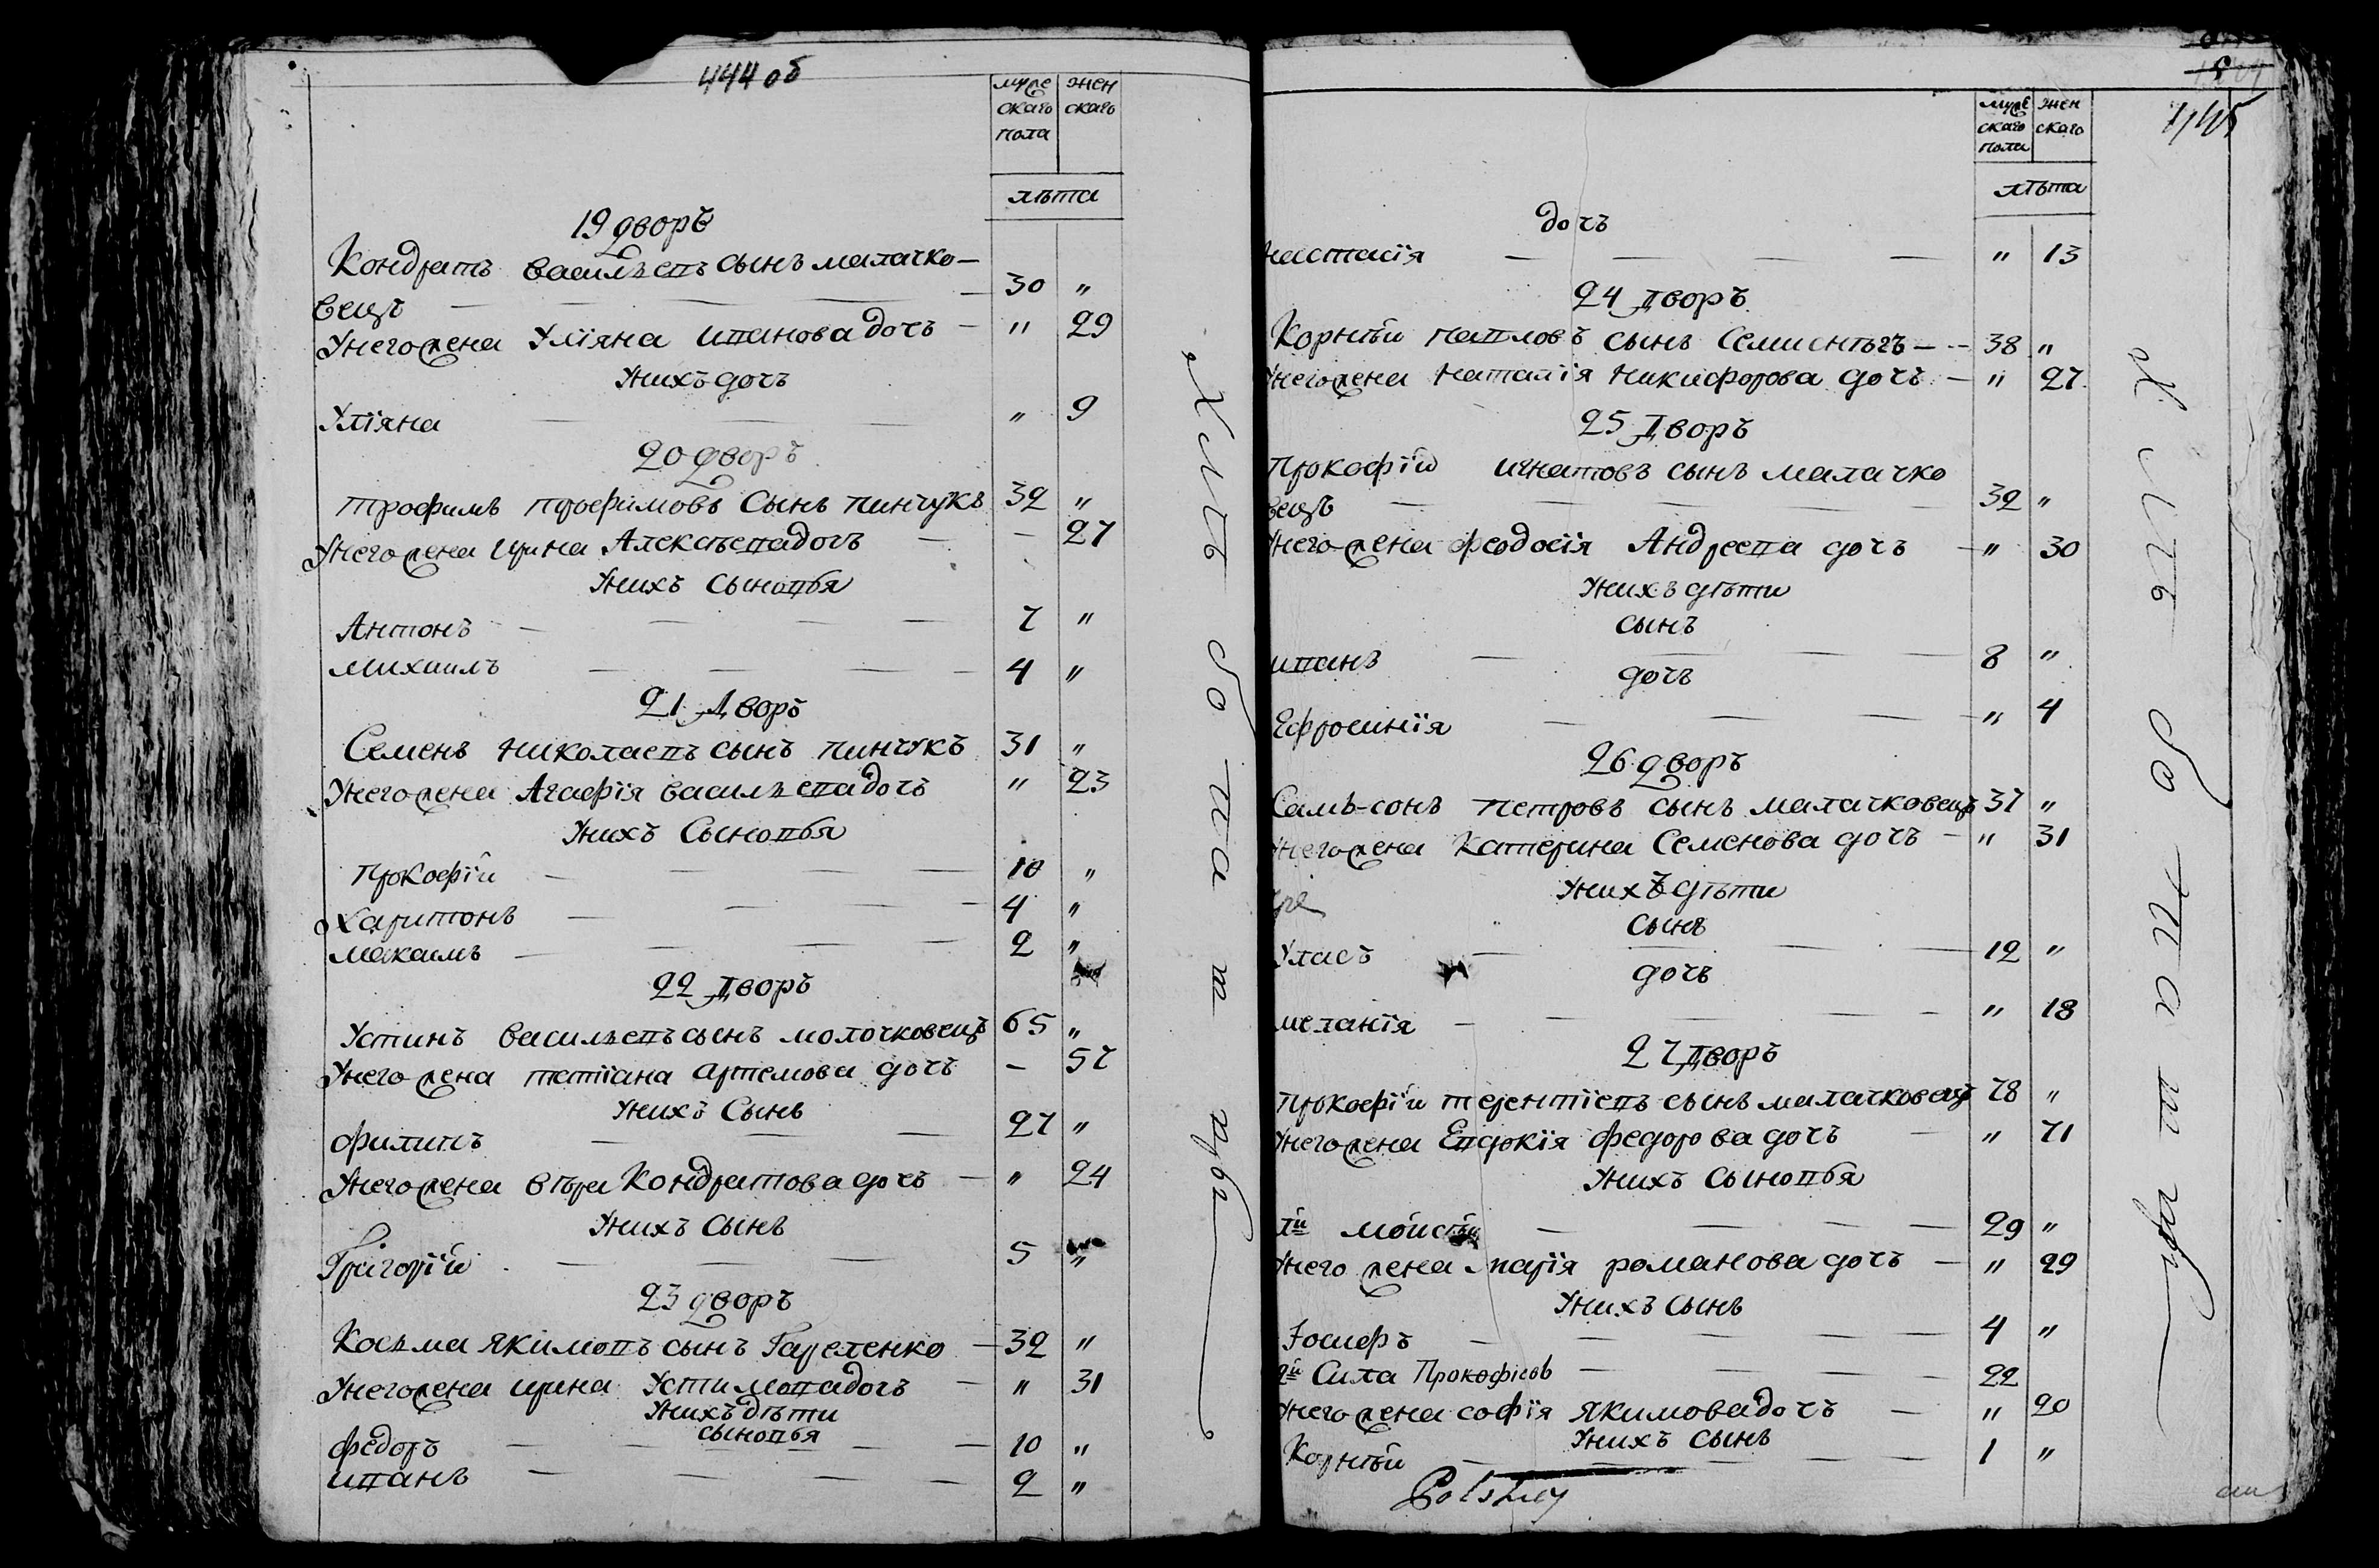 444 об
муже женскаго скаго
пола
лѣта
19 дворъ
Кондратъ Васильевъ сынъ малачко-
вецъ — 30 "
У него жена Улїяна иванова дочъ — " 29
У нихъ дочъ
Улїяна — " 9
20 дворъ
трофимъ трофимовъ сынъ пинчукъ 32 "
У него жена Ирина Алексѣева дочъ — — 27
У нихъ сыновья
Антонъ — 7 "
михаилъ — 4 "
21 дворъ
Семенъ николаевъ сынъ пинчукъ 31 "
У него жена Агафїя васильева дочъ " 23
У нихъ Сыновья
прокофїй — 10 "
Харитонъ — 4 "
максимъ — 2 "
22 дворъ
Устинъ васильевъ сынъ молочковецъ 65 "
У него жена тетїана артемова дочъ — 57
У нихъ Сынъ
филипъ — 27 "
У него жена вѣра Кондратова дочъ — " 24
У нихъ сынъ
Григорїй — 5 "
23 дворъ
Косьма якимовъ сынъ Гареленко — 32 "
У него жена ирина Устимова дочъ — " 31
У нихъ дѣти
сыновья
федоръ — 10 "
иванъ — 2 "
445
муже женскаго скаго
пола
лѣта
дочъ
настасїя — " 13
24 дворъ
Корнѣй павловъ сынъ — 38 "
У него жена наталїя никифорова дочъ — " 27
25 дворъ
прокофїй игнатовъ сынъ малачко
вецъ — 32 "
У него жена феодосїя Андреева дочъ — " 30
У нихъ дѣти
сынъ
иванъ — 8 "
дочъ
Ефросинїя — " 4
26 дворъ
Самъ-сонъ петровъ сынъ малачковецъ 37 "
У него жена Катерина Семенова дочъ — " 31
У нихъ дѣти
Сынъ
Уласъ — 12 "
дочъ
меланїя — " 18
27 дворъ
прокофїй терентїевъ сынъ малачковецъ 78 "
У него жена Евдокїя федорова дочъ — " 71
У нихъ сыновья
1й мойсѣй — 29 "
У него жена марїя романова дочъ — " 29
У нихъ сынъ
Іосифъ — 4 "
2й Сила Прокофїевъ — 22
У него жена софїя якимова дочъ — " 20
У нихъ сынъ
Корнѣй — 1 "